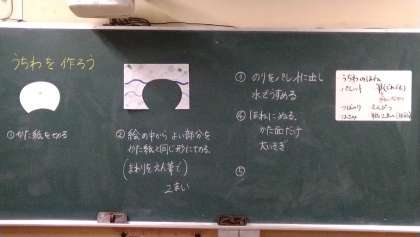 うちわを作ろう
①かた紙を切る
②絵の中から よい部分を
かた紙と同じ形に切る。
(まわりをえん筆で)
2まい
③のりをパレットに出し
水でうすめる
④ほねにぬる。
かた面だけ
大いそぎ
⑤
うちわのほね
パレット
えんぴつ
はさみ